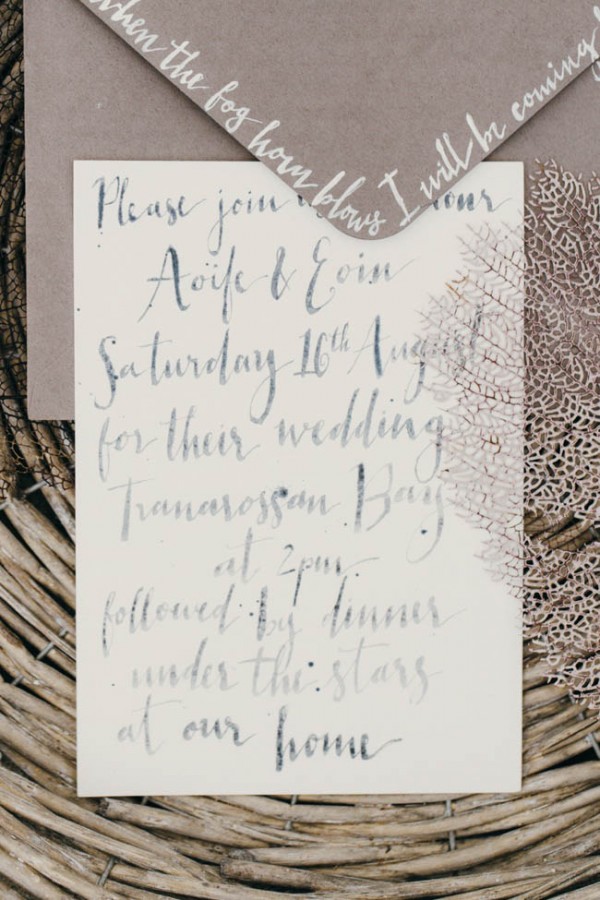 when the fog horn blows I will be coming
Please join our
Aoife & Eoin
Saturday 16th August
for their wedding
Tranarossan Bay
at 2pm
followed by dinner
under the stars
at our home